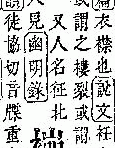 衣襟也說文衽
或謂之褸裂或
又人名衽北
人見幽明錄
徒協切音牒重